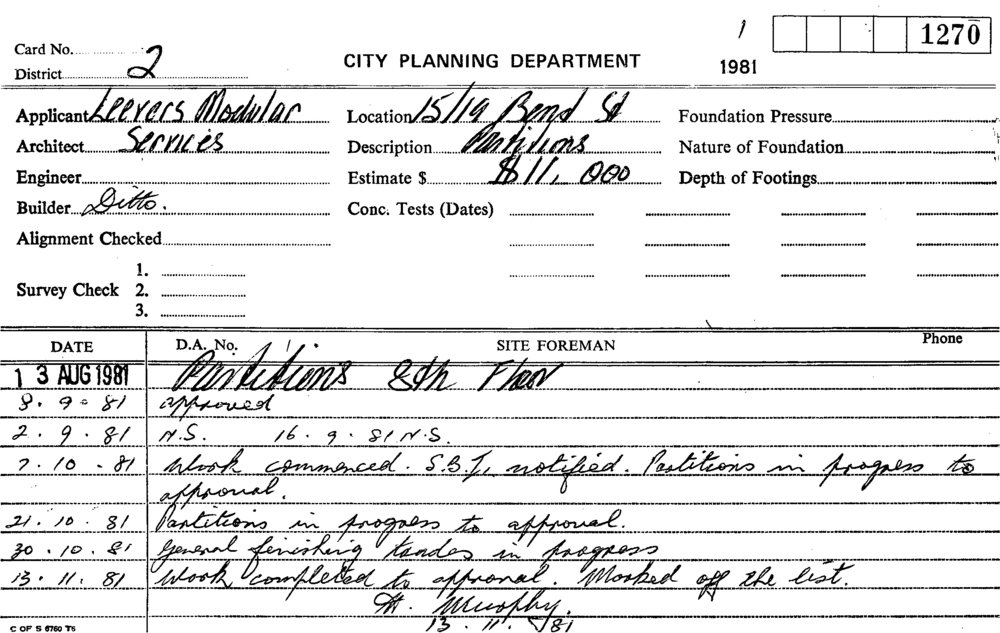 1 1270
Card No.
District 2
CITY PLANNING DEPARTMENT
1981
Applicant Leevers Modular
Location 15/19 Bond St
Foundation Pressure
Architect Services
Description Partitions
Nature of Foundation
Engineer
Estimate $ $11,000
Depth of Footings
Builder Ditto.
Conc. Tests (Dates)
Alignment Checked
Survey Check
1.
2.
3.
DATE D.A. No. SITE FOREMAN Phone
13 AUG 1981 Partitions 8th Floor
8. 9. 81 approved
2. 9. 81 N.S. 16. 9. 81 N.S.
7. 10. 81 Work commenced. S.B.I. notified. Partitions in progress to
approval.
21. 10. 81 Partitions in progress to approval.
30. 10. 81 General finishing trades in progress
13. 11. 81 Work completed to approval. Marked off the list.
Murphy.
13. 11. 81
C OF S 6760 T6